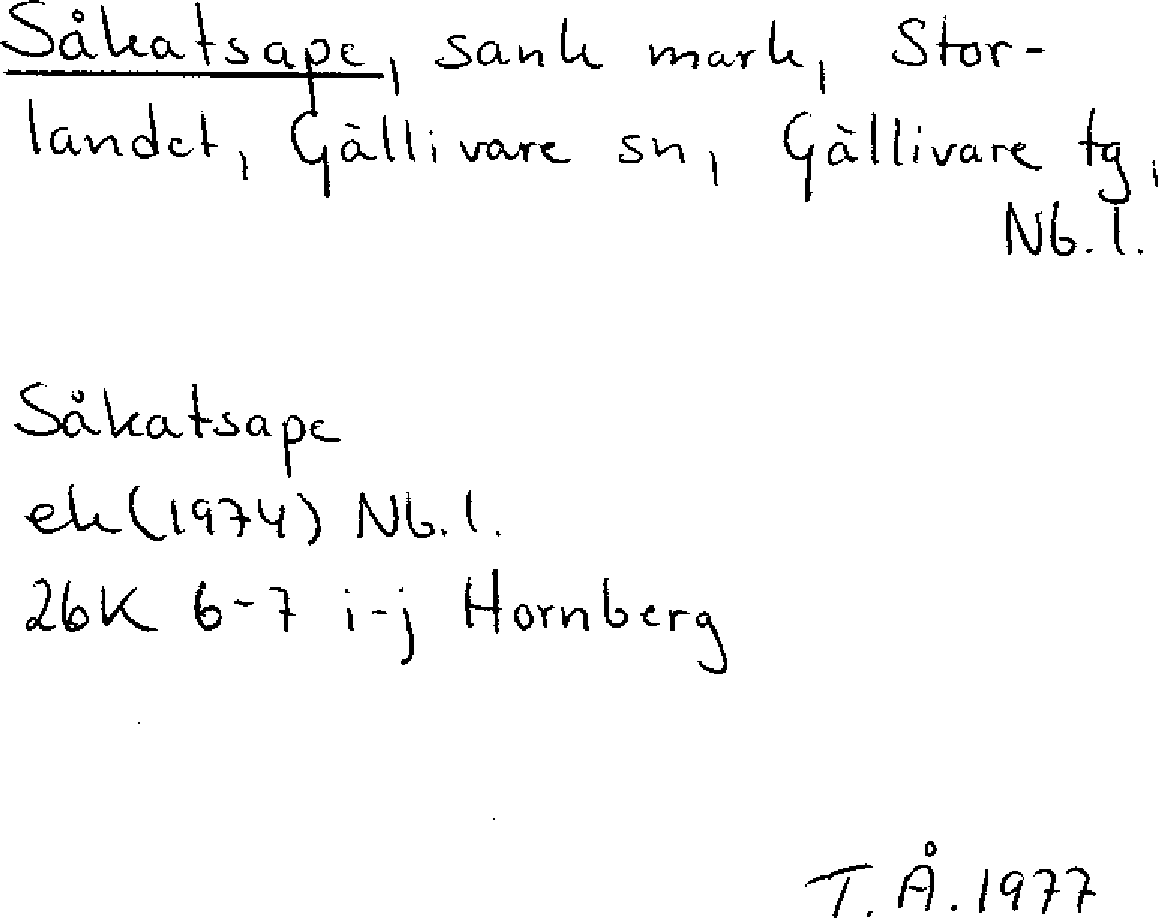 Såkatsape, sank mark, Stor-
landet, Gällivare sn, Gällivare tg,
Nb. l.
Såkatsape
ek (1974) Nb. l.
26K 6-7 i-j Hornberg
T. Å. 1977